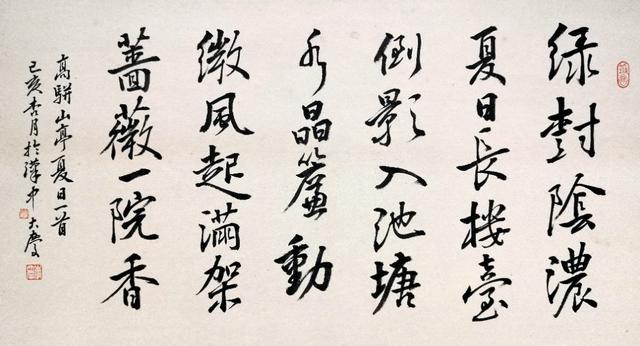 绿樹陰濃
夏日長樓臺
倒影入池塘
水晶簾動
微風起滿架
薔薇一院香
高駢山亭夏日一首
己亥杏月於漢中大慶